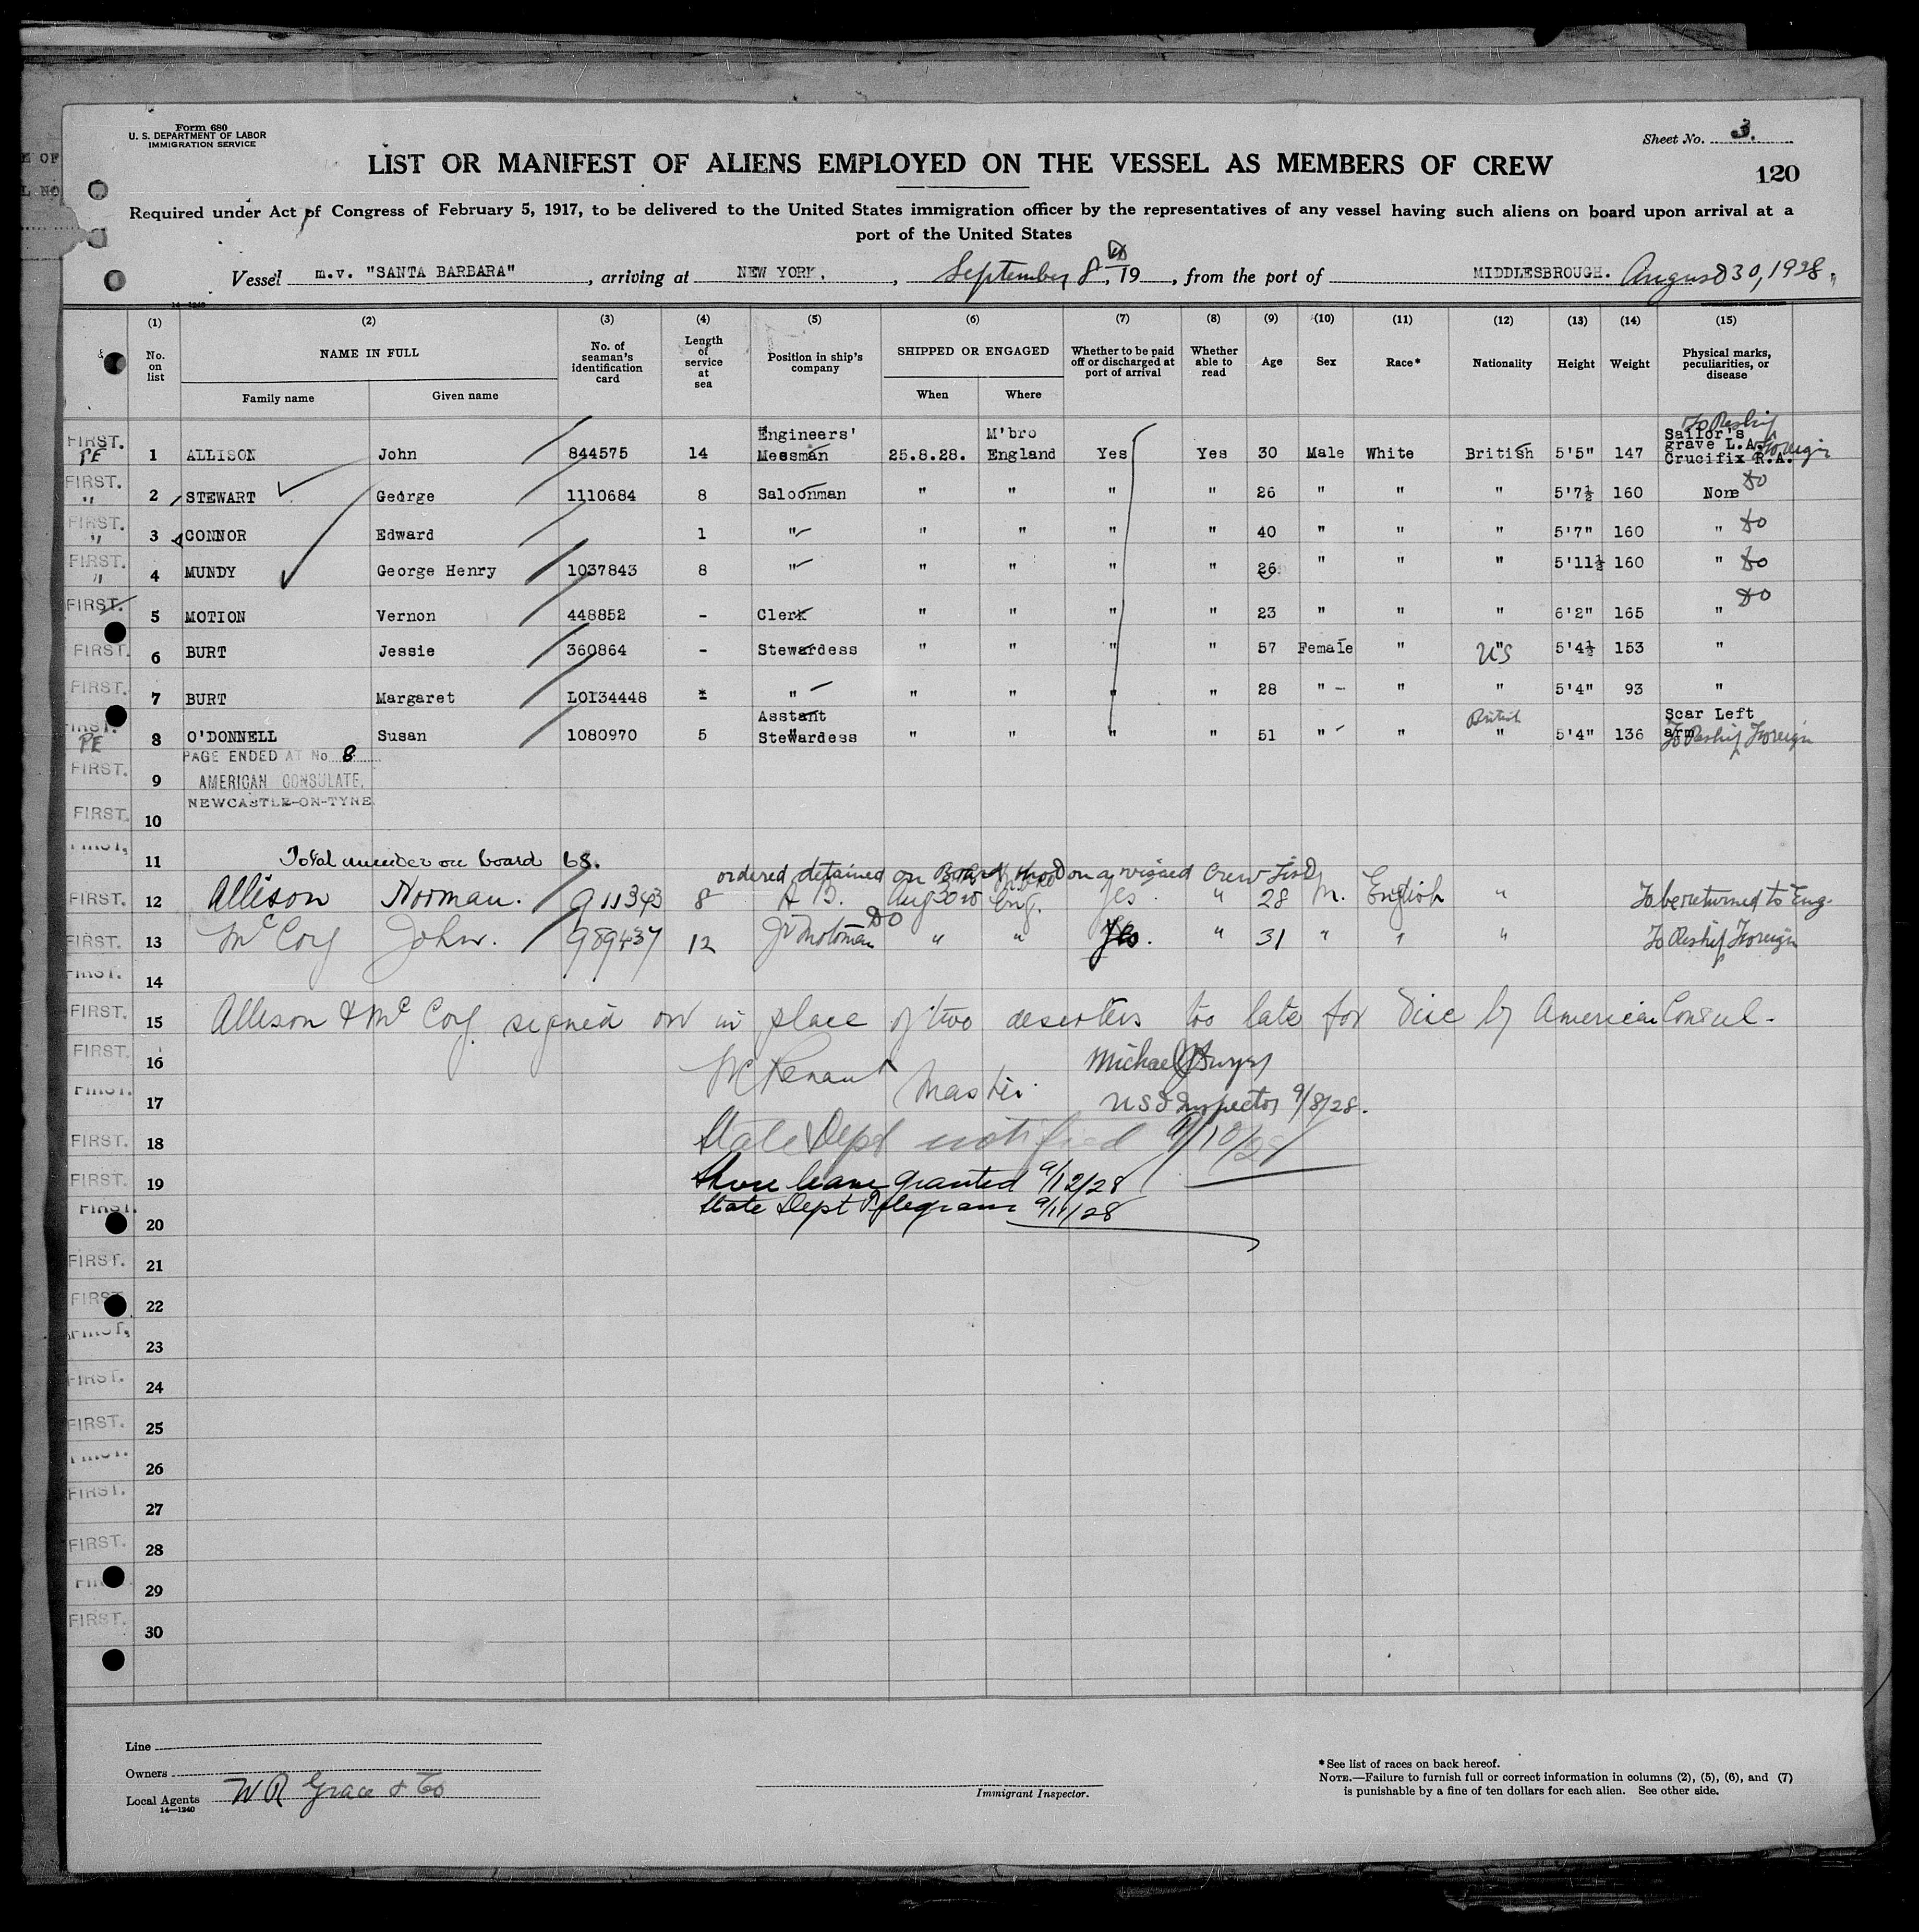 Form 680
U. S. DEPARTMENT OF LABOR
IMMIGRATION SERVICE
Sheet No. 3.
LIST OR MANIFEST OF ALIENS EMPLOYED ON THE VESSEL AS MEMBERS OF CREW
120
Required under Act of Congress of February 5, 1917, to be delivered to the United States immigration officer by the representatives of any vessel having such aliens on board upon arrival at a
port of the United States
Vessel m.v. "SANTA BARBARA", arriving at NEW YORK, September 8th, 19, from the port of MIDDLESBROUGH. August 30, 1928.
14-1240
(1) (2) (3) (4) (5) (6) (7) (8) (9) (10) (11) (12) (13) (14) (15)
No. on list NAME IN FULL No. of seaman's identification card Length of service at sea Position in ship's company SHIPPED OR ENGAGED Whether to be paid off or discharged at port of arrival Whether able to read Age Sex Race* Nationality Height Weight Physical marks, peculiarities, or disease
Family name Given name When Where
FIRST. PE 1 ALLISON John 844575 14 Engineers' Messman 25.8.28. M'bro England Yes Yes 30 Male White British 5'5" 147 Sailor's grave L.A. Crucifix R.A. To Reship Foreign
FIRST. " 2 STEWART George 1110684 8 Saloonman " " " " 26 " " " 5'7½ 160 None do
FIRST. " 3 CONNOR Edward 1 " " " " " 40 " " " 5'7" 160 " do
FIRST. " 4 MUNDY George Henry 1037843 8 " " " " " 26 " " " 5'11½ 160 " do
FIRST. 5 MOTION Vernon 448852 - Clerk " " " " 23 " " " 6'2" 165 " do
FIRST. 6 BURT Jessie 360864 - Stewardess " " " " 57 Female " " US 5'4½ 153 "
FIRST. 7 BURT Margaret L0134448 " " " " " 28 " " " 5'4" 93 "
FIRST. PE 8 O'DONNELL Susan 1080970 5 Asstant " Stewardess " " " " 51 " " British " 5'4" 136 Scar Left arm To Reship Foreign
PAGE ENDED AT No 8
FIRST. 9 AMERICAN CONSULATE,
NEWCASTLE-ON-TYNE
FIRST. 10
FIRST. 11 Total number on board 68.
ordered detained on Board not on a visaed Crew List
FIRST. 12 Allison Norman. 911343 8 A B. Aug 30 Eng. Yes. " 28 M. English " To be returned to Eng.
FIRST. 13 McCoy John. 989437 12 Jr Motorman DO " " Yes. " 31 " " " To Reship Foreign
FIRST. 14
FIRST. 15 Allison & McCoy signed on in place of two deserters too late for vise by American Consul.
FIRST. 16 Michael
FIRST. 17 Master. US Inspector 9/8/28.
FIRST. 18 State Dept notified 9/10/28
FIRST. 19 Shore leave granted 9/12/28
FIRST. 20 State Dept Telegram 9/11/28
FIRST. 21
FIRST. 22
FIRST. 23
FIRST. 24
FIRST. 25
FIRST. 26
FIRST. 27
FIRST. 28
FIRST. 29
FIRST. 30
Line
Owners
Local Agents W R Grace & Co
14—1240
Immigrant Inspector.
*See list of races on back hereof.
NOTE.—Failure to furnish full or correct information in columns (2), (5), (6), and (7)
is punishable by a fine of ten dollars for each alien. See other side.